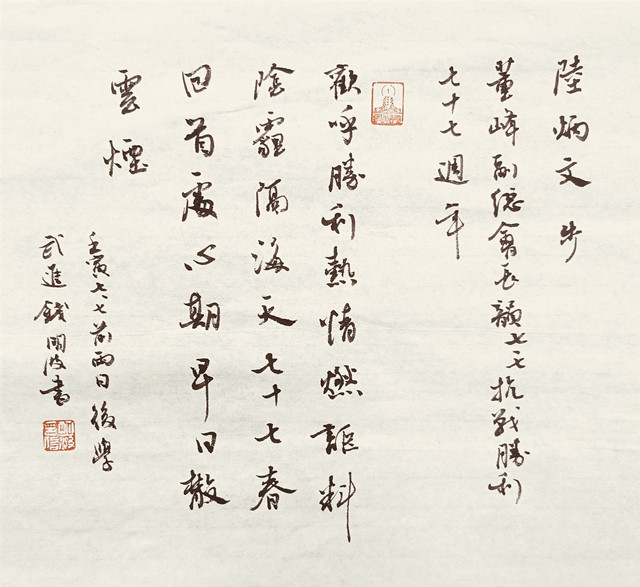 陸炳文步
董峰副總會長韻七七抗戰勝利
七十七週年
歡呼勝利熱情燃詎料
陰霾隔海天七十七春
回首處心期早日散
雲煙
壬寅七七前兩日後學
武進錢明波書